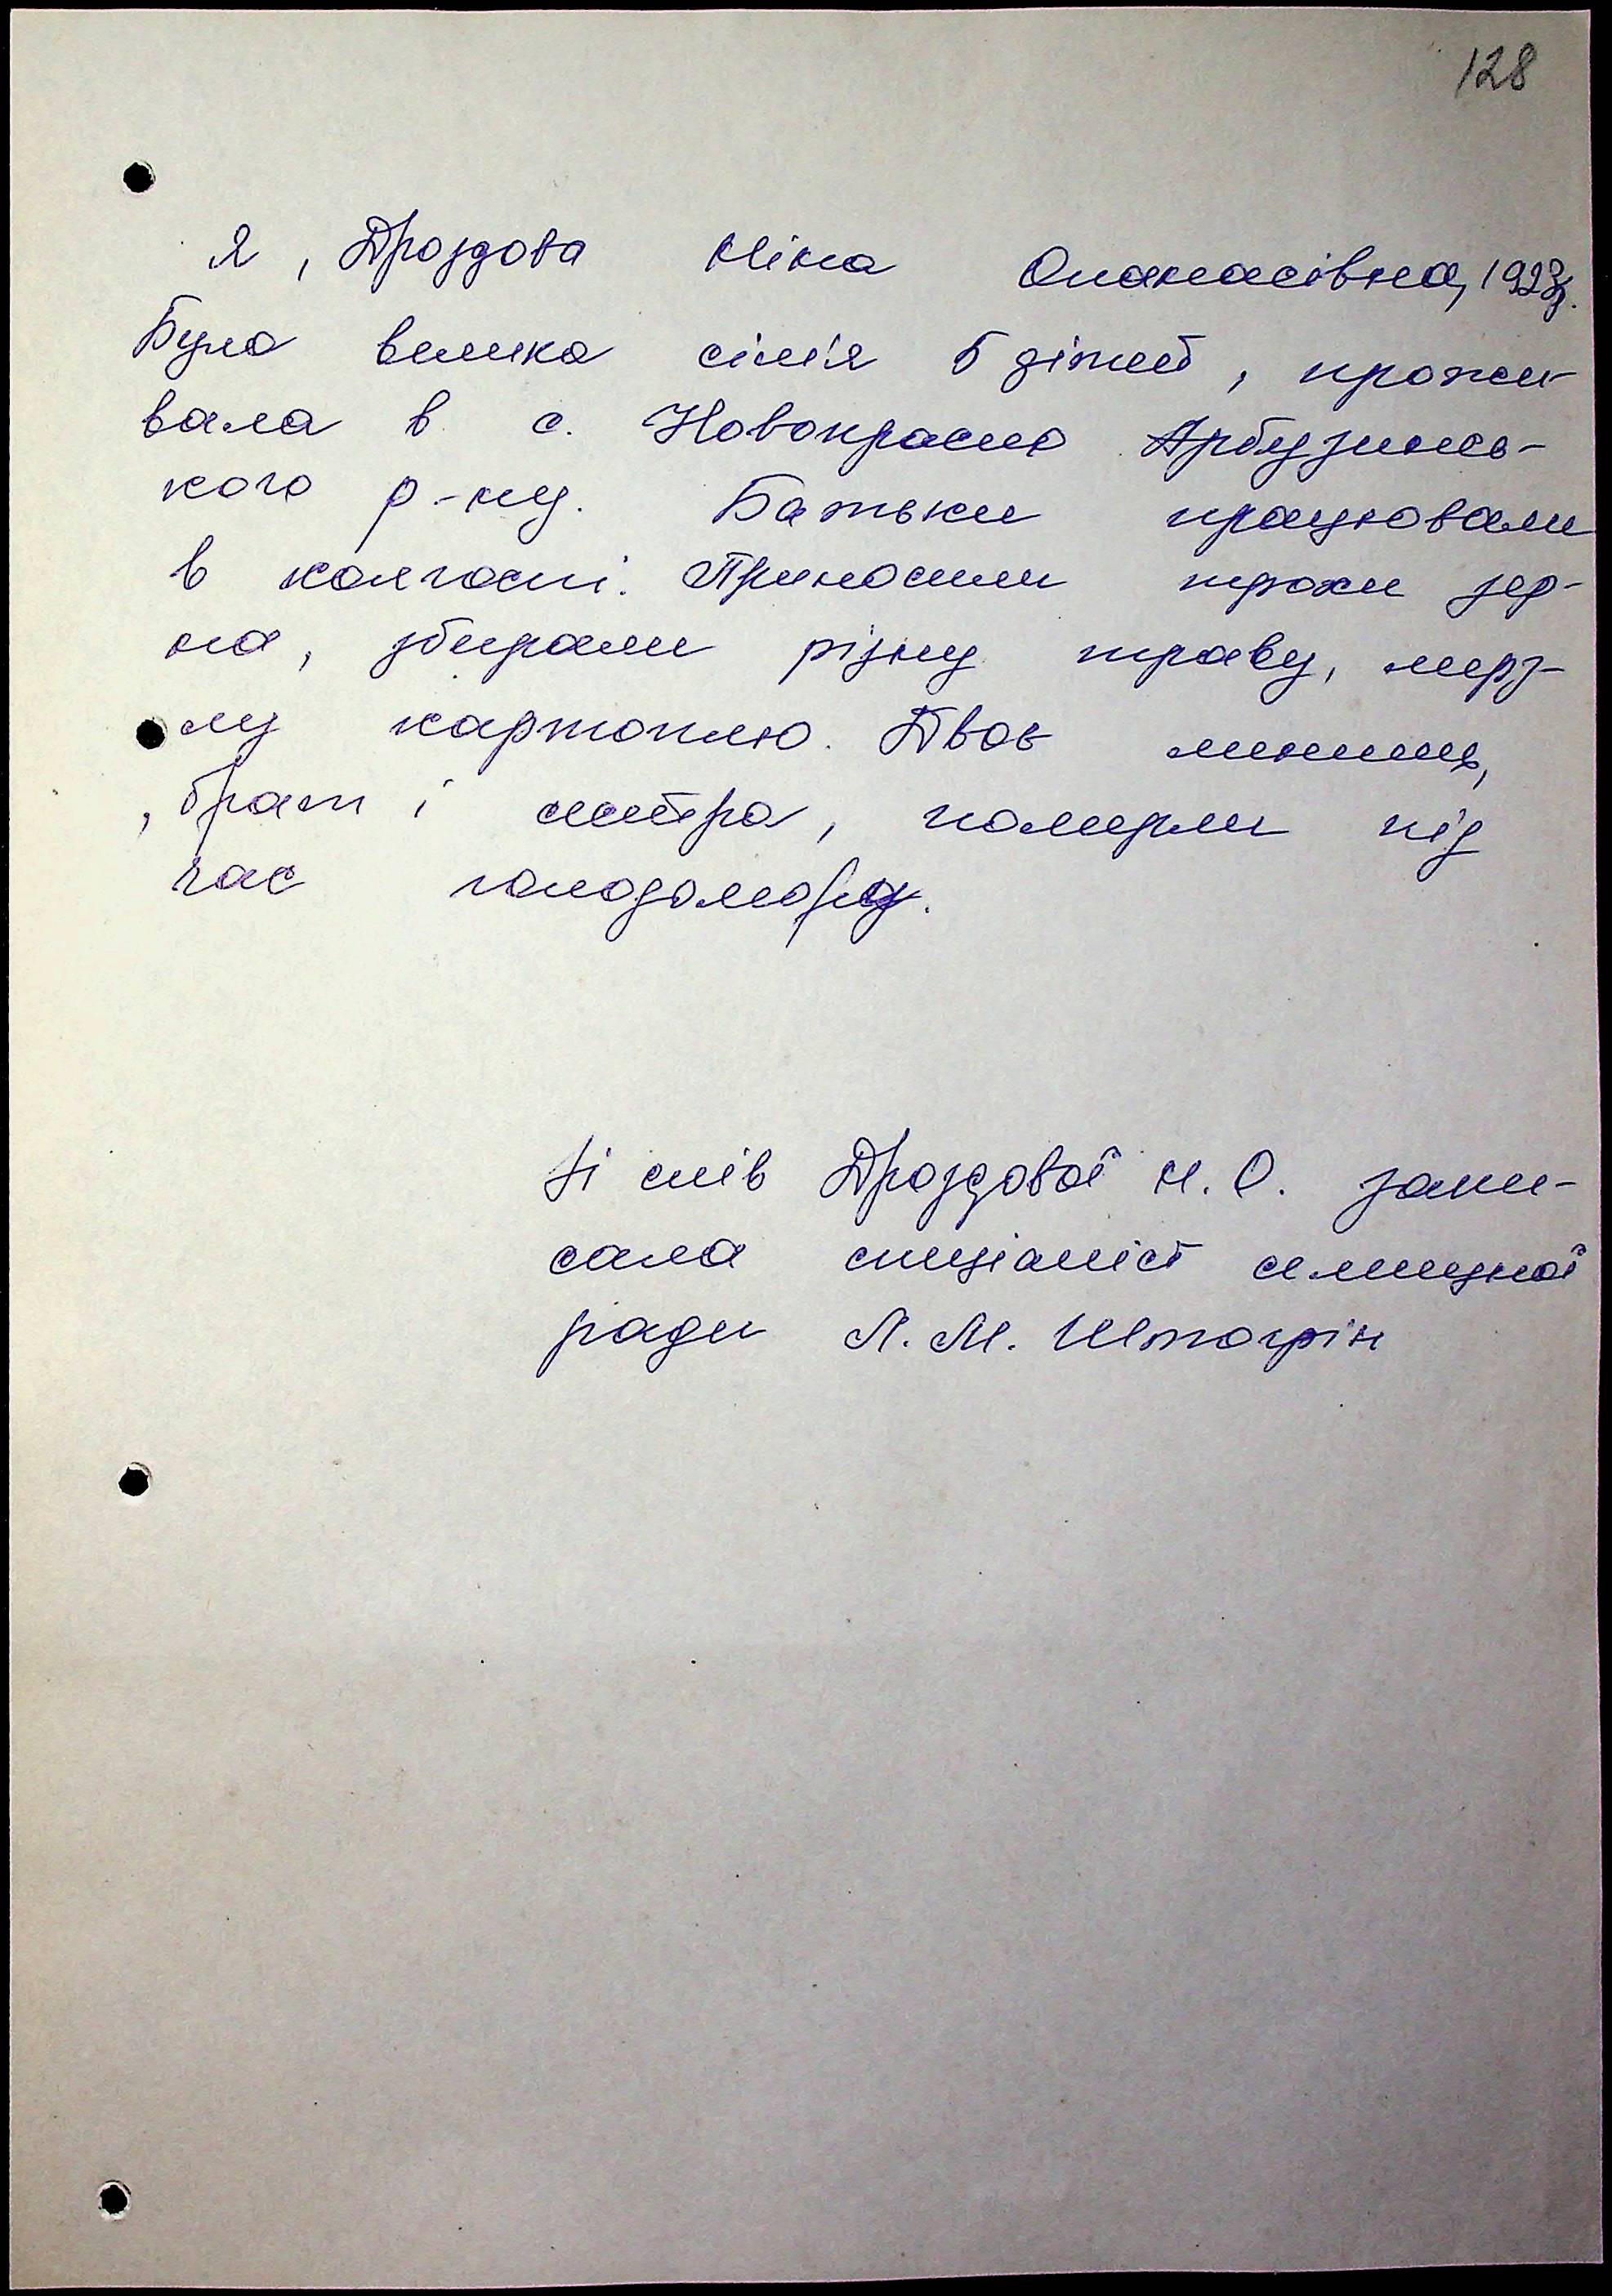 128
Я, Дроздова Ніна Опанасівна, 1923р.
Була велика сім'я 5 дітей, прожи-
вала в с. Новокрасне Арбузинсь-
кого р-ну. Батьки працювали
в колгоспі. Приносили трохи зер-
на, збирали різну траву, мерз-
лу картоплю. Двоє менших,
брат і сестра, померли під
час голодомору.
Зі слів Дроздової Н. О. запи-
сала спеціаліст селищної
ради Л. М. Штогрін